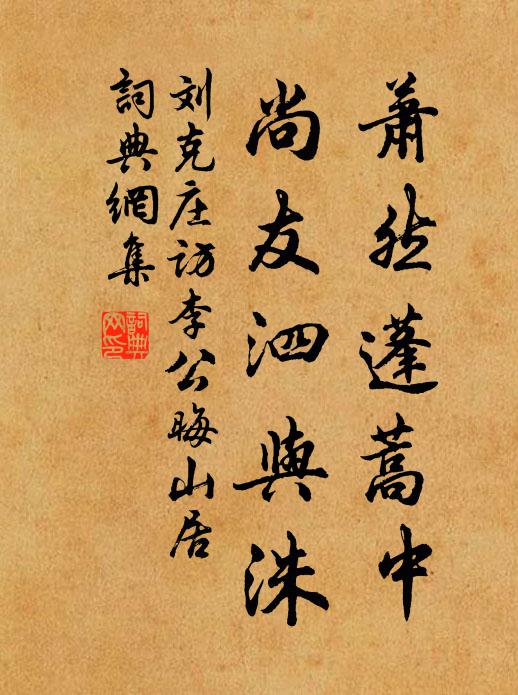 萧然蓬蒿中
尚友泗與洙
刘克庄访李公晦山居
詞典網集
詞典網印